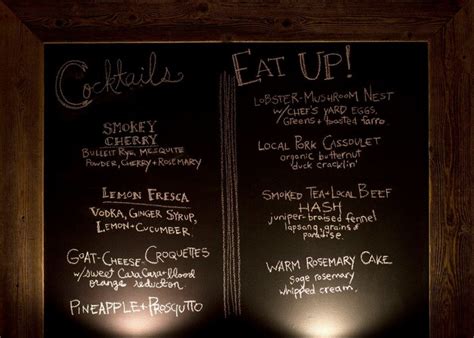 Cocktails
SMOKEY
CHERRY
BULLEIT RYE, MESQUITE
POWDER, CHERRY + ROSEMARY
LEMON FRESCA
VODKA, GINGER SYRUP,
LEMON + CUCUMBER
GOAT-CHEESE CROQUETTES
w/ sweet Cara Cara + blood
orange reduction
PINEAPPLE + PROSCIUTTO
EAT UP!
LOBSTER-MUSHROOM NEST
w/ CHEF'S YARD EGGS,
Greens + toasted farro.
LOCAL PORK CASSOULET
organic butternut
'duck cracklin'
SMOKED TEA + LOCAL BEEF
HASH
juniper-braised fennel
lapsang, grains of
paradise.
WARM ROSEMARY CAKE
sage rosemary
whipped cream.